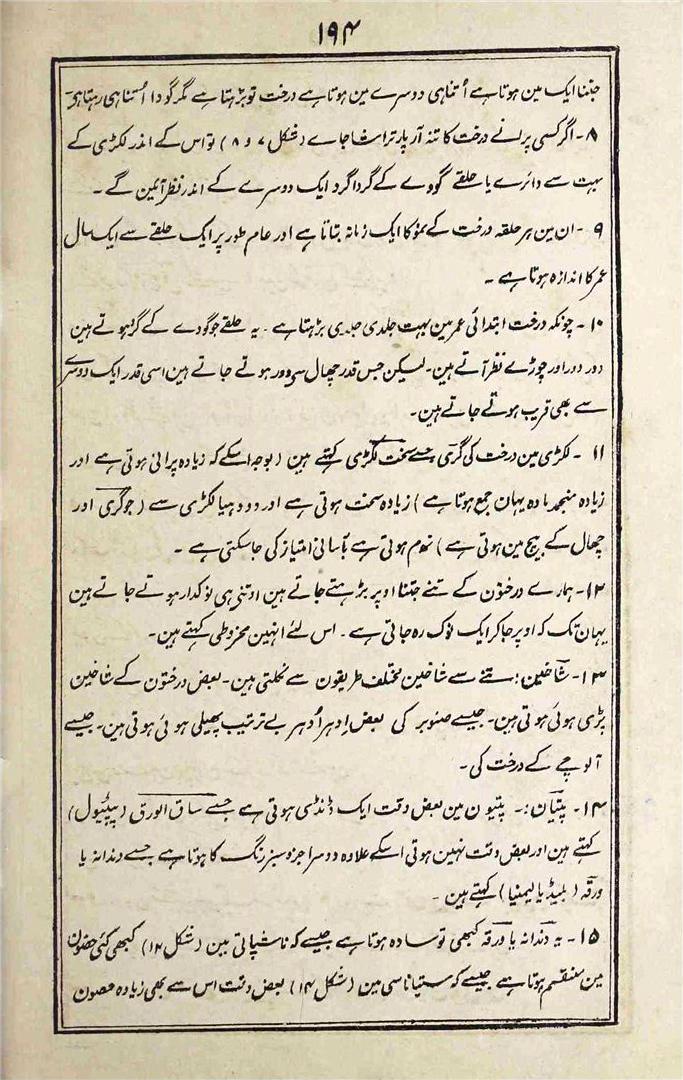 ۱۹۴
جتنا ایک مین ہوتا ہے اُتنا ہی دوسرے مین ہوتا ہے درخت تو بڑہتا ہے مگر گودا اُتنا ہی رہتا ہی۔
۸۔ اگر کسی پرانے درخت کا تنہ آر پار تراشا جاے (شکل ۷ و ۸) تو اس کے اندر لکڑی کے
بہت سے دائرے یا حلقے گودے کے گرداگرد ایک دوسرے کے اندر نظر آئین گے۔
۹۔ ان مین ہر حلقہ درخت کے نمو کا ایک زمانہ بتاتا ہے اور عام طور پر ایک حلقے سے ایک سال
عمر کا اندازہ ہوتا ہے۔
۱۰۔ چونکہ درخت ابتدائی عمر مین بہت جلدی جلدی بڑہتا ہے۔ یہ حلقے جو گودے کے گرد ہوتے ہین
دور دور اور چوڑے نظر آتے ہین۔ لیکن جس قدر چھال سی دور ہوتے جاتے ہین اسی قدر ایک دوسرے
سے بھی قریب ہوتے جاتے ہین۔
۱۱۔ لکڑی مین درخت کی گری جسے سخت لکڑی کہتے ہین (بوجہ اسکے کہ زیادہ پرانی ہوتی ہے اور
زیادہ منجمد مادہ یہان جمع ہوتا ہے) زیادہ سخت ہوتی ہے اور دودہیا لکڑی سے (جو گری اور
چھال کے بیچ مین ہوتی ہے) نرم ہوتی ہے بآسانی امتیاز کی جاسکتی ہے۔
۱۲۔ ہمارے درختون کے تنے جتنا اوپر بڑہتے جاتے ہین اوتنی ہی نوکدار ہوتے جاتے ہین
یہان تک کہ اوپر جاکر ایک نوک رہ جاتی ہے۔ اس لئے انہین مخروطی کہتے ہین۔
۱۳۔ شاخین: تنے سے شاخین مختلف طریقون سے نکلتی ہین۔ بعض درختون کے شاخین
بڑی ہوئی ہوتی ہین۔ جیسے صنوبر کی بعض اِدہر اُدہر بے ترتیب پھیلی ہوئی ہوتی ہین۔ جیسے
آلوچے کے درخت کی۔
۱۴۔ پتیان:۔ پتیون مین بعض وقت ایک ڈنڈی ہوتی ہے جسے ساق الورق (پیٹیول)
کہتے ہین اور بعض وقت نہین ہوتی اسکے علاوہ دوسرا جزو سبز رنگ کا ہوتا ہے جسے دندانہ یا
ورقہ (بلیڈ یا لیمنیا) کہتے ہین۔
۱۵۔ یہ دندانہ یا ورقہ کبھی تو سادہ ہوتا ہے جیسے کہ ناشپاتی مین (شکل ۱۲) کبھی کئی حصون
مین منقسم ہوتا ہے جیسے کہ ستیاناسی مین (شکل ۱۴) بعض وقت اس سے بھی زیادہ حصون